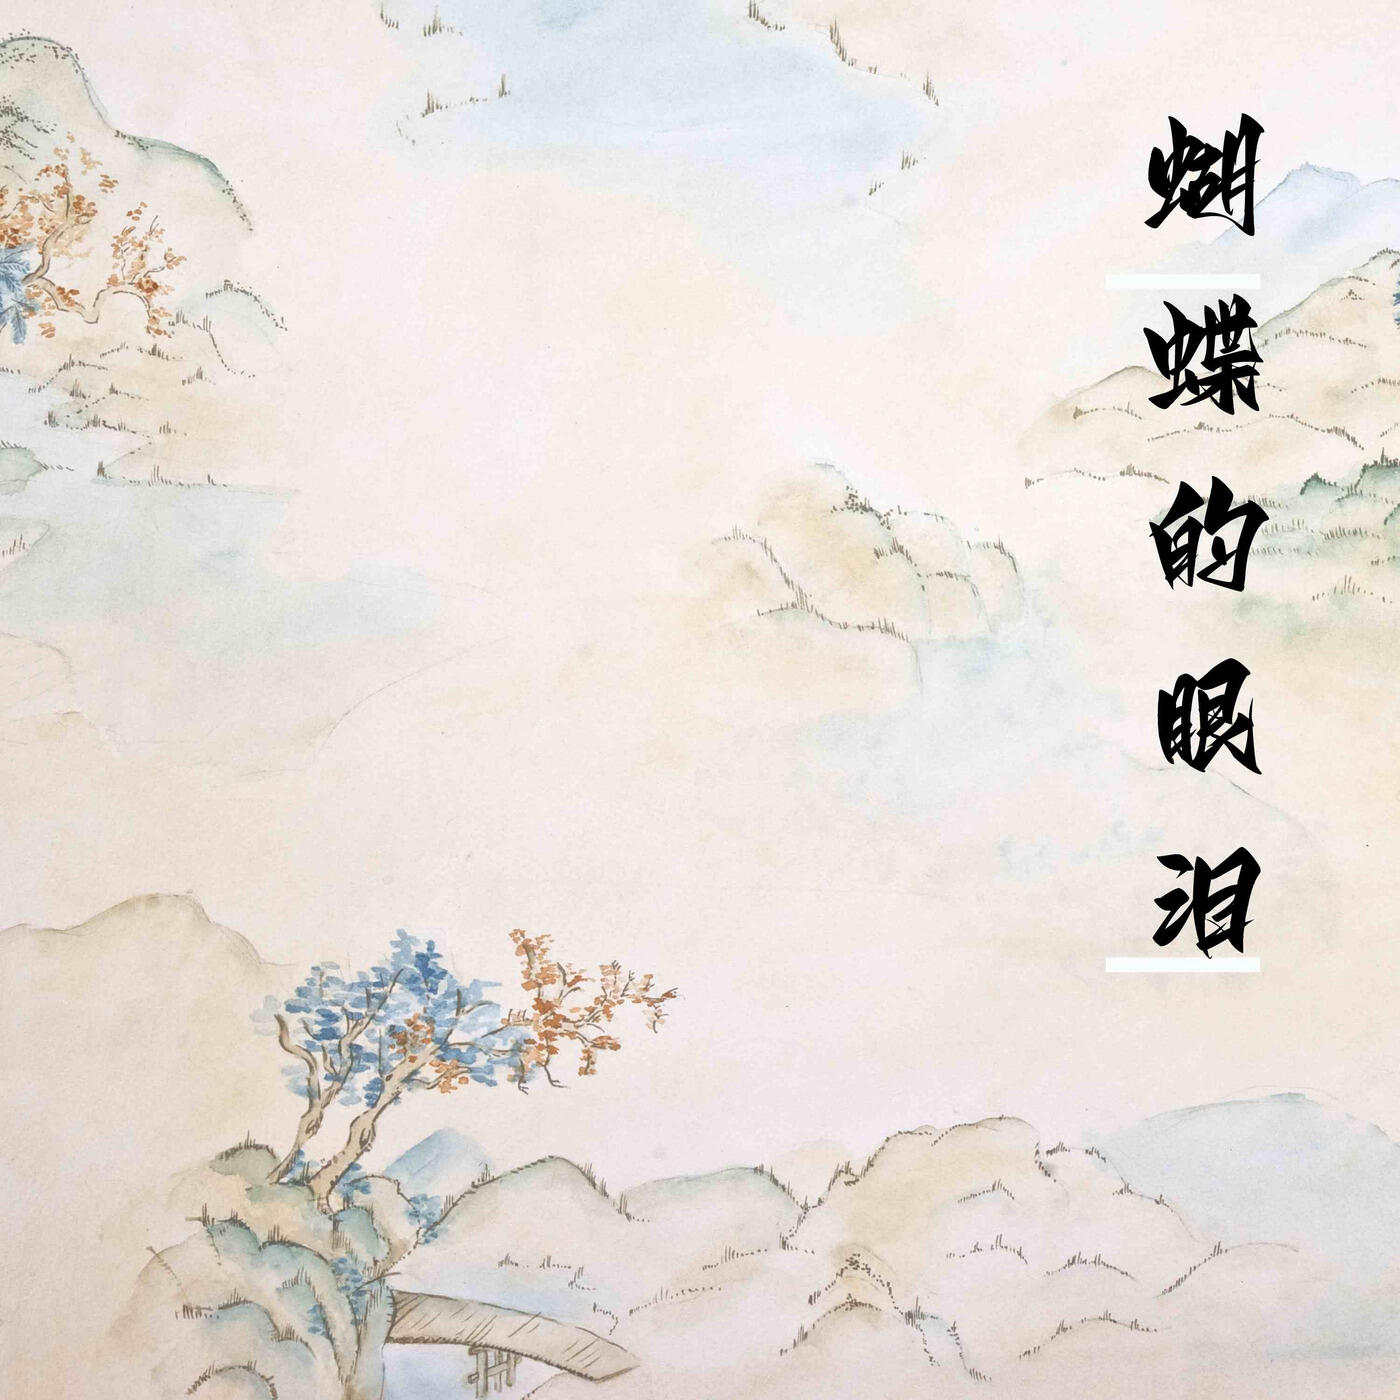 蝴蝶的眼泪